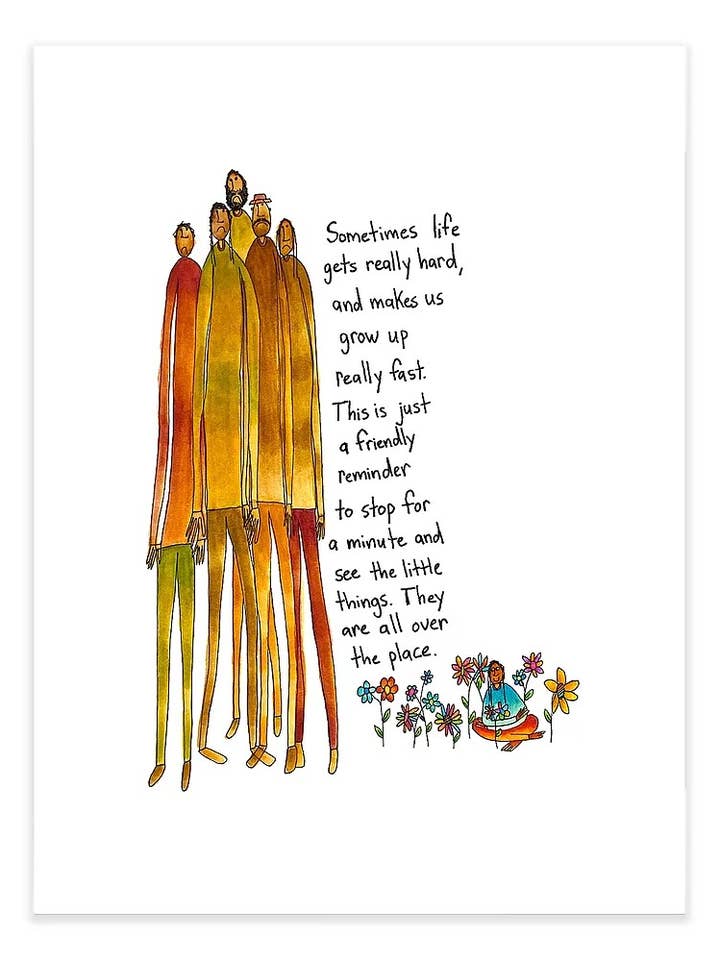 Sometimes life
gets really hard,
and makes us
grow up
really fast.
This is just
a friendly
reminder
to stop for
a minute and
see the little
things. They
are all over
the place.